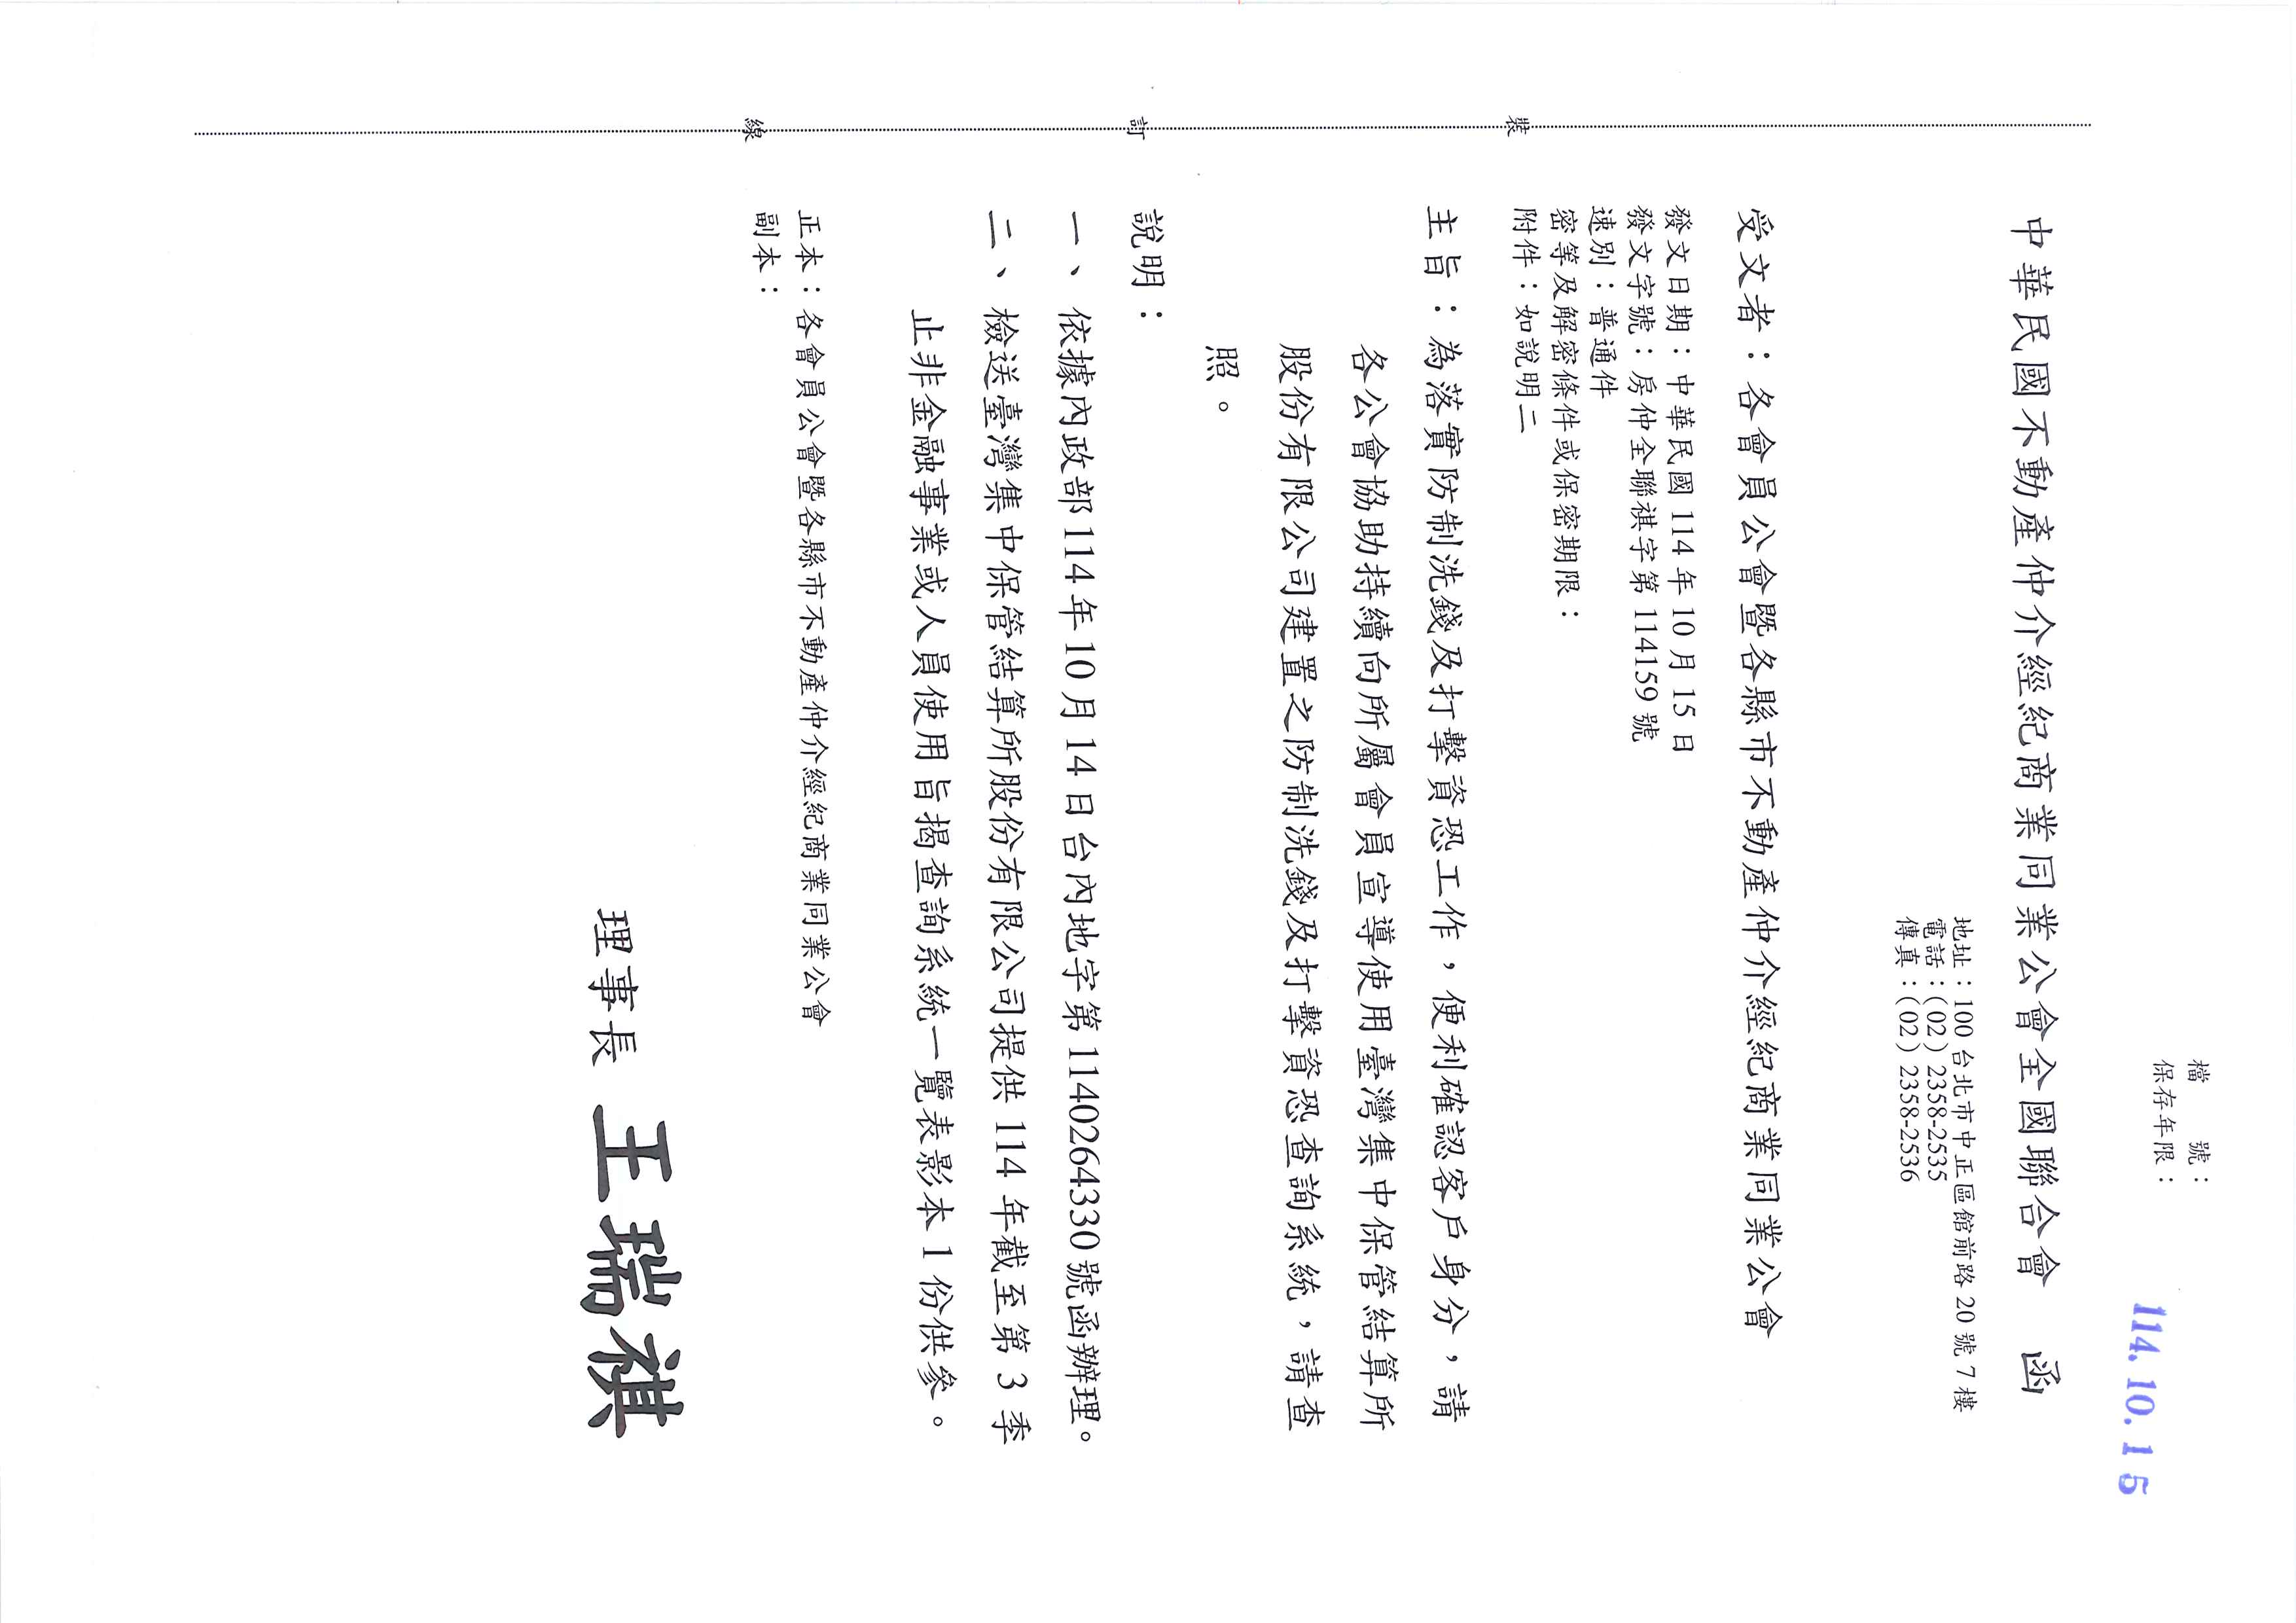 檔　　號：
保存年限：
114.10.15
中華民國不動產仲介經紀商業同業公會全國聯合會　函
地址：100 台北市中正區館前路 20 號 7 樓
電話：(02) 2358-2535
傳真：(02) 2358-2536
受文者：各會員公會暨各縣市不動產仲介經紀商業同業公會
發文日期：中華民國 114 年 10 月 15 日
發文字號：房仲全聯祺字第 114159 號
速別：普通件
密等及解密條件或保密期限：
附件：如說明二
主旨：為落實防制洗錢及打擊資恐工作，便利確認客戶身分，請
各公會協助持續向所屬會員宣導使用臺灣集中保管結算所
股份有限公司建置之防制洗錢及打擊資恐查詢系統，請查
照。
說明：
一、依據內政部 114 年 10 月 14 日台內地字第 1140264330 號函辦理。
二、檢送臺灣集中保管結算所股份有限公司提供 114 年截至第 3 季
止非金融事業或人員使用旨揭查詢系統一覽表影本 1 份供參。
正本：各會員公會暨各縣市不動產仲介經紀商業同業公會
副本：
理事長 王瑞祺
裝
訂
線